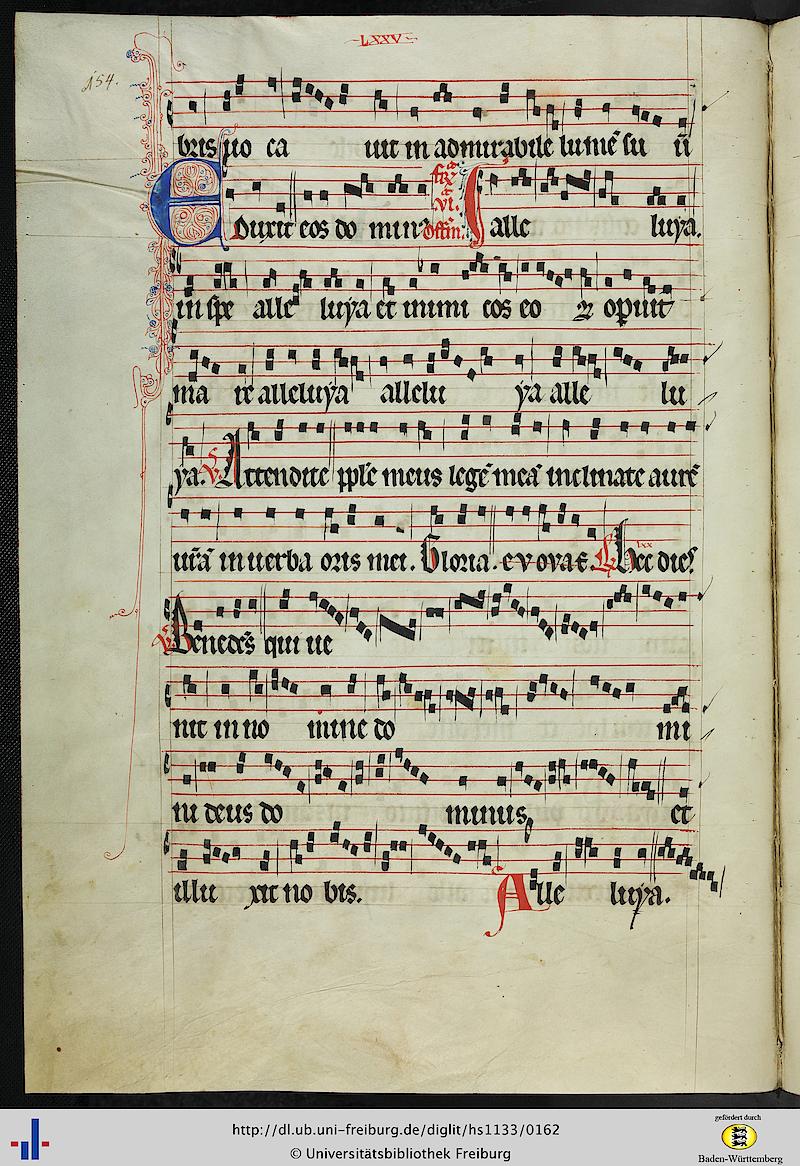 LXXV
154.
bris uo ca uit in admirabile lumē su ū
Eduxit eos do minꝰ Offm. alle luya.
in spe alle luya et inimi cos eo ꝝ opuit
ma re alleluya allelu ya alle lu
ya. Attendite pple meus legē meā inclinate aurē
urā in uerba oris mei. Gloria. evovae. Hec dies
V Benedcs qui ue
nit in no mine do mi
ni deus do minus, et
illu xit no bis. Alle luya.
http://dl.ub.uni-freiburg.de/diglit/hs1133/0162
© Universitätsbibliothek Freiburg
gefördert durch
Baden-Württemberg